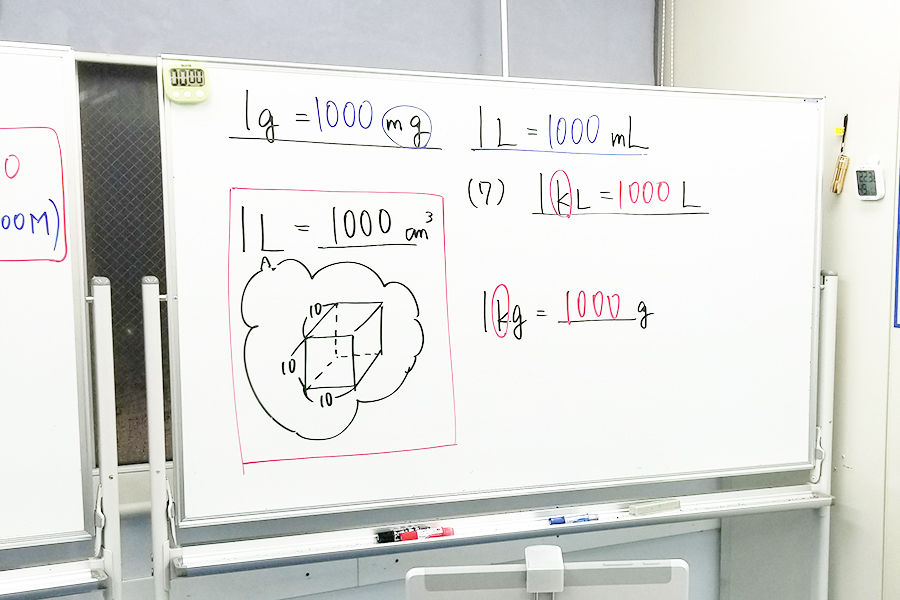 0
00M)
1g = 1000 mg
1L = 1000 mL
(7) 1kL = 1000 L
1L = 1000 cm³
10
10
10
1kg = 1000 g